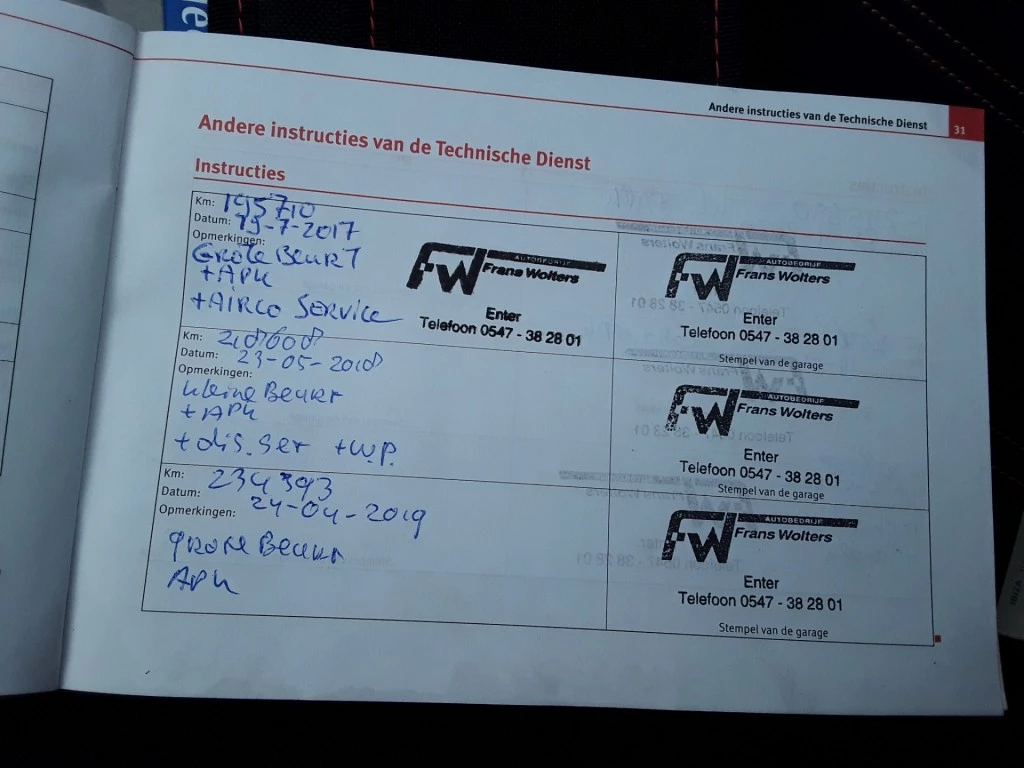 Andere instructies van de Technische Dienst
31
Andere instructies van de Technische Dienst
Instructies
Km: 195710
Datum: 19-7-2017
Opmerkingen:
Grote Beurt
+ APK
+ AIRCO SERVICE
AUTOBEDRIJF
FW Frans Wolters
Enter
Telefoon 0547 - 38 28 01
AUTOBEDRIJF
FW Frans Wolters
Enter
Telefoon 0547 - 38 28 01
Stempel van de garage
Km: 218608
Datum: 23-05-2018
Opmerkingen:
kleine Beurt
+ APK
+ dis. ser + w.p.
AUTOBEDRIJF
FW Frans Wolters
Enter
Telefoon 0547 - 38 28 01
Stempel van de garage
Km: 234393
Datum: 24-04-2019
Opmerkingen:
grote Beurt
APK
AUTOBEDRIJF
FW Frans Wolters
Enter
Telefoon 0547 - 38 28 01
Stempel van de garage